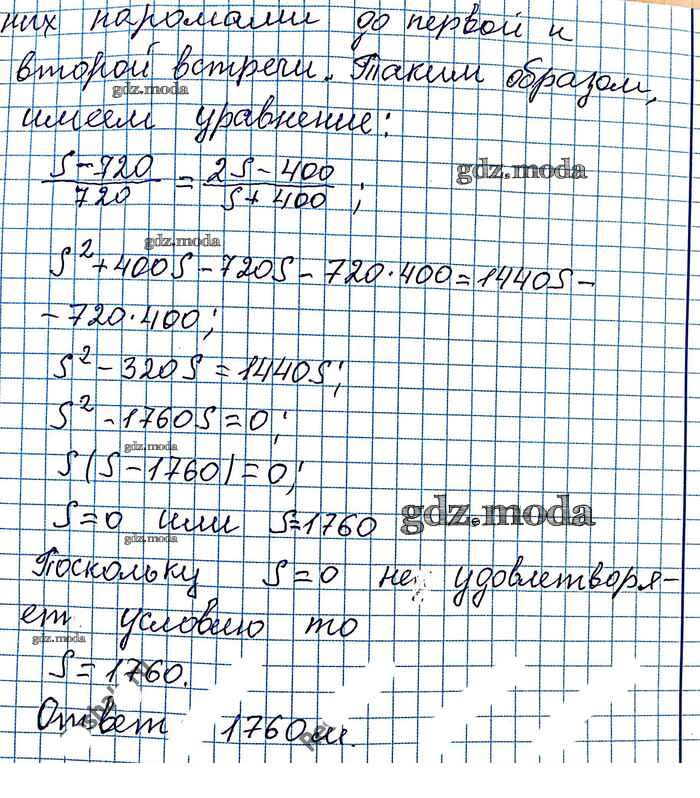 них паромами до первой и
второй встречи. Таким образом,
gdz.moda
имеем уравнение:
(S-720)/720 = (2S-400)/(S+400);
gdz.moda
gdz.moda
S²+400S-720S-720·400=1440S-
-720·400;
S²-320S=1440S;
S²-1760S=0;
gdz.moda
S(S-1760)=0;
S=0 или S=1760
gdz.moda
gdz.moda
Поскольку S=0 не удовлетворя-
ет условию то
gdz.moda
S=1760.
Ответ 1760м.